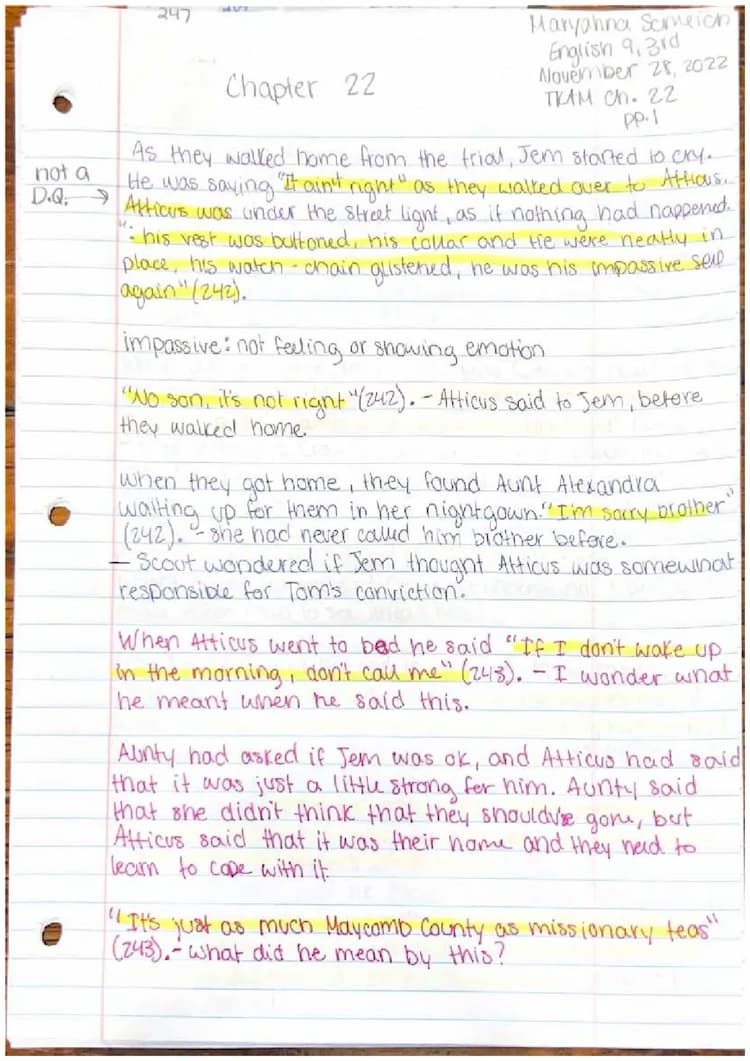 247
Maryahna Someich
English 9, 3rd
November 28, 2022
TKAM Ch. 22
pp. 1
Chapter 22
As they walked home from the trial, Jem started to cry.
not a
D.Q. →
He was saying "It ain't right" as they walked over to Atticus.
Atticus was under the street light, as if nothing had happened.
": his vest was buttoned, his collar and tie were neatly in
place, his watch-chain glistened, he was his impassive self
again" (242).
impassive: not feeling or showing emotion
"No son, it's not right" (242). - Atticus said to Jem, before
they walked home.
When they got home, they found Aunt Alexandra
waiting up for them in her nightgown. "I'm sorry brother"
(242). - she had never called him brother before.
- Scout wondered if Jem thought Atticus was somewhat
responsible for Tom's conviction.
When Atticus went to bed he said "If I don't wake up
in the morning, don't call me" (243). - I wonder what
he meant when he said this.
Aunty had asked if Jem was ok, and Atticus had said
that it was just a little strong for him. Aunty said
that she didn't think that they should've gone, but
Atticus said that it was their home and they need to
learn to cope with it.
"It's just as much Maycomb County as missionary teas"
(243). - what did he mean by this?